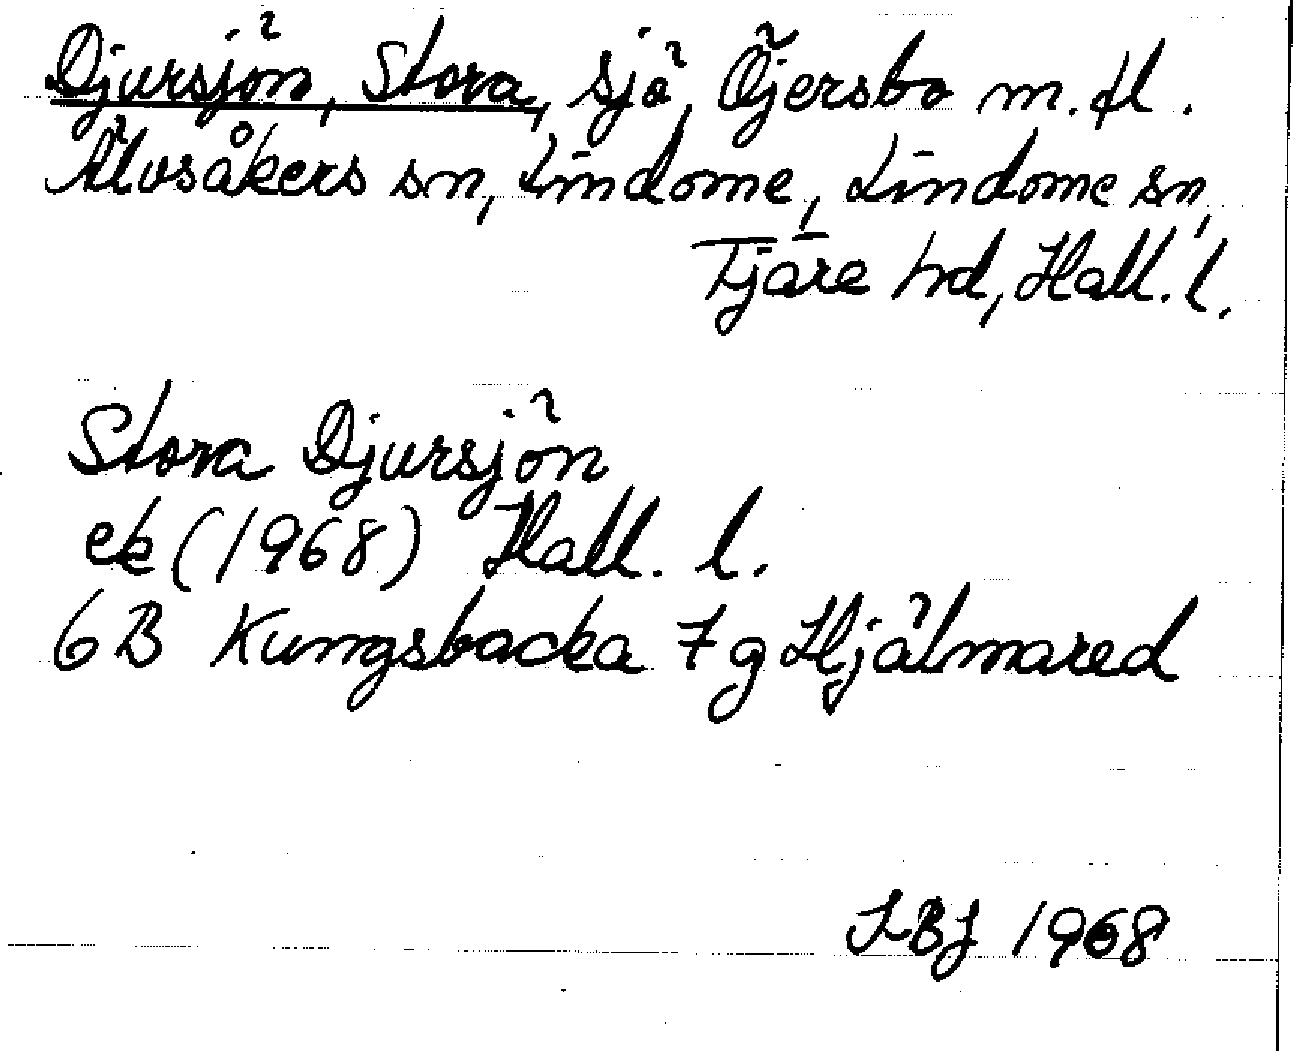 Djursjön, Stora, sjö, Öjersbo m.fl.
Älvsåkers sn, Lindome, Lindome sn,
Fjäre hd, Hall. l.
Stora Djursjön
ek (1968) Hall. l.
6B Kungsbacka 7g Hjälmared
LBJ 1968